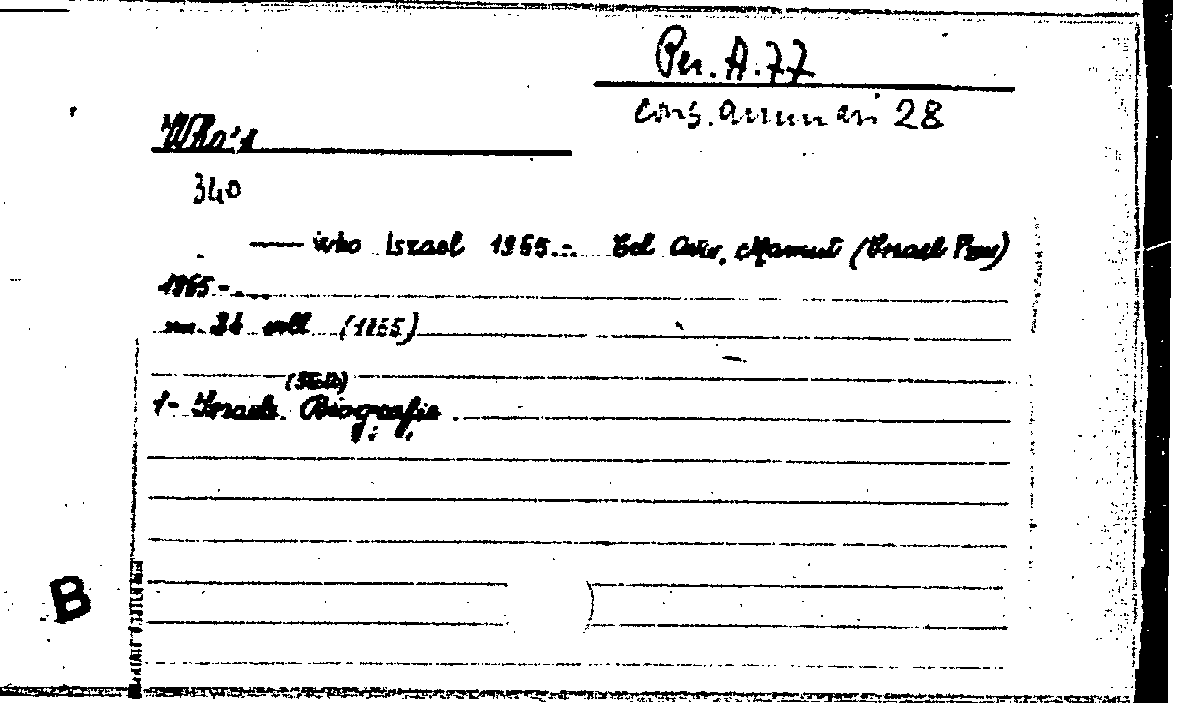 Per. A.77
cons. annuari 28
Who's
340
—— who Israel 1965-.. Tel Aviv, Mamut (Israel Press)
1965-....
v. 26 cm (1965)
(Stato)
1- Israele. Biografie
B